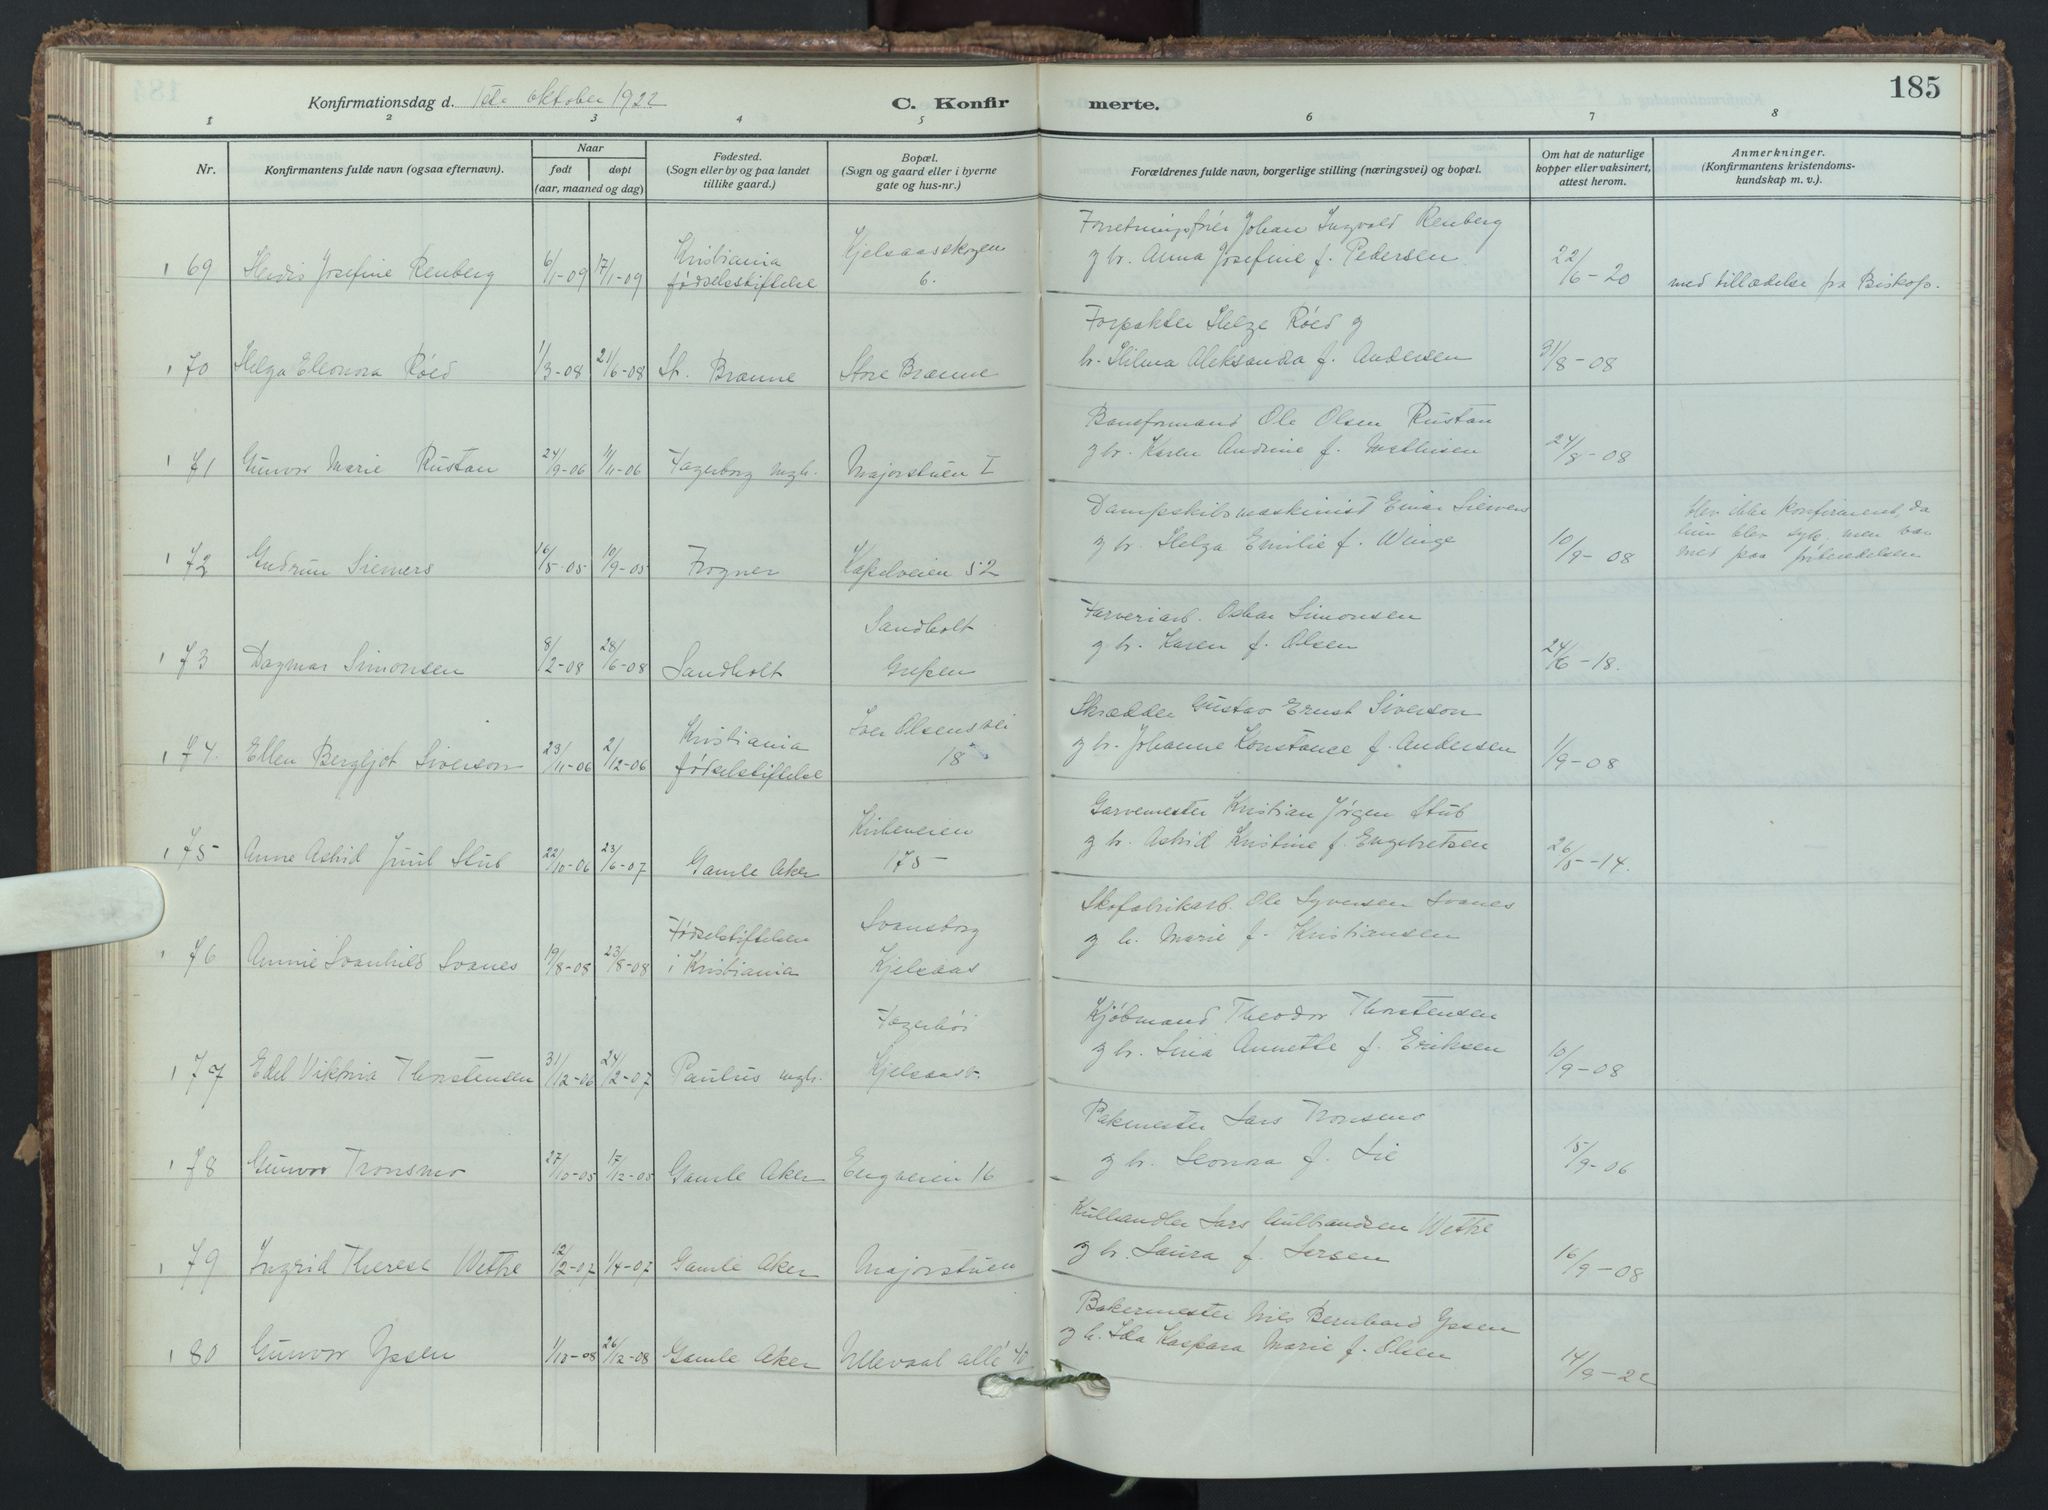 185
Konfirmationsdag d. 1ste oktober 1922
C. Konfirmerte.
1 2 3 4 5 6 7 8
Nr.
Konfirmantens fulde navn (ogsaa efternavn).
Naar
født døpt
(aar, maaned og dag)
Fødested.
(Sogn eller by og paa landet
tillike gaard.)
Bopæl.
(Sogn og gaard eller i byerne
gate og hus-nr.)
Forældrenes fulde navn, borgerlige stilling (næringsvei) og bopæl.
Om hat de naturlige
kopper eller vaksinert,
attest herom.
Anmerkninger.
(Konfirmantens kristendoms-
kundskap m. v.).
Forretningsfører Johan Ingvald Renberg
Kristiania Kjelsaasskogen
69 Herdis Josefine Renberg 6/1-09 17/1-09 fødselsstiftelse 6. g hr. Anna Josefine f. Pedersen 22/6-20 med tilladelse fra Biskop.
Forpakter Helge Røed g
70 Helga Eleonora Røed 1/3-08 21/6-08 St. Brænne Store Brænne hr. Hilma Aleksandra f. Andersen 31/8-08
Banformand Ole Olsen Rustan
71 Gunvor Marie Rustan 24/9-06 11/11-06 Fagerborg mgh. Majorstuen I g hr. Karen Andrine f. Mathisen 24/8-08
Dampskibsmaskinist Einar Siemers blev ikke konfirmert, da
72 Gudrun Siemers 16/5-05 10/9-05 Frogner Kapelveien 52 g hr. Helga Emilie f. Winge 10/9-08 hun blev syk, men var
med paa
Sandholt Farveriarb. Oskar Simonsen
73 Dagmar Simonsen 8/2-08 28/6-08 Sandholt Grefsen g hr. Karen f. Olsen 24/6-18.
Kristiania Iver Olsens vei Skrædder Gustav Ernst Siverson
74. Ellen Bergljot Siverson 23/11-06 2/12-06 fødselstiftelse 18 g hr. Johanne Konstance f. Andersen 1/9-08
Kirkeveien Garvemester Kristian Jørgen Stub
75 Anne Astrid Juul Stub 22/10-06 23/6-07 Gamle Aker 175- g hr. Astrid Kristine f. Engebretsen 26/5-14.
Fødselstiftelsen Svansborg Skofabrikarb. Ole Syversen Svanes
76 Annie Svanhild Svanes 19/8-08 23/8-08 i Kristiania Kjelsaas g h. Marie f. Kristiansen
Fagerhøi Kjøbmand Theodor Thorstensen
77 Edel Viktoria Thorstensen 31/12-06 24/12-07 Paulus mgh. Kjelsaas. g hr. Lina Annette f. Eriksen 10/9-08
Pakmester Lars Tronsmo
78 Gunvor Tronsmo 27/10-05 17/12-05 Gamle Aker Engveien 16 g hr. Leonora f. Lie 15/9-06
Kulhandler Lars Gulbrandsen Wethe
79 Ingrid Therese Wethe 12/2-07 1/4-07 Gamle Aker Majorstuen g hr. Laura f. Larsen 16/9-08
Bakermester Nils Bernhard Yssen
80 Gunvor Yssen 1/10-08 26/12-08 Gamle Aker Ullevaal allé 40 g h. Ida Kaspara Marie f. Olsen 14/9-22